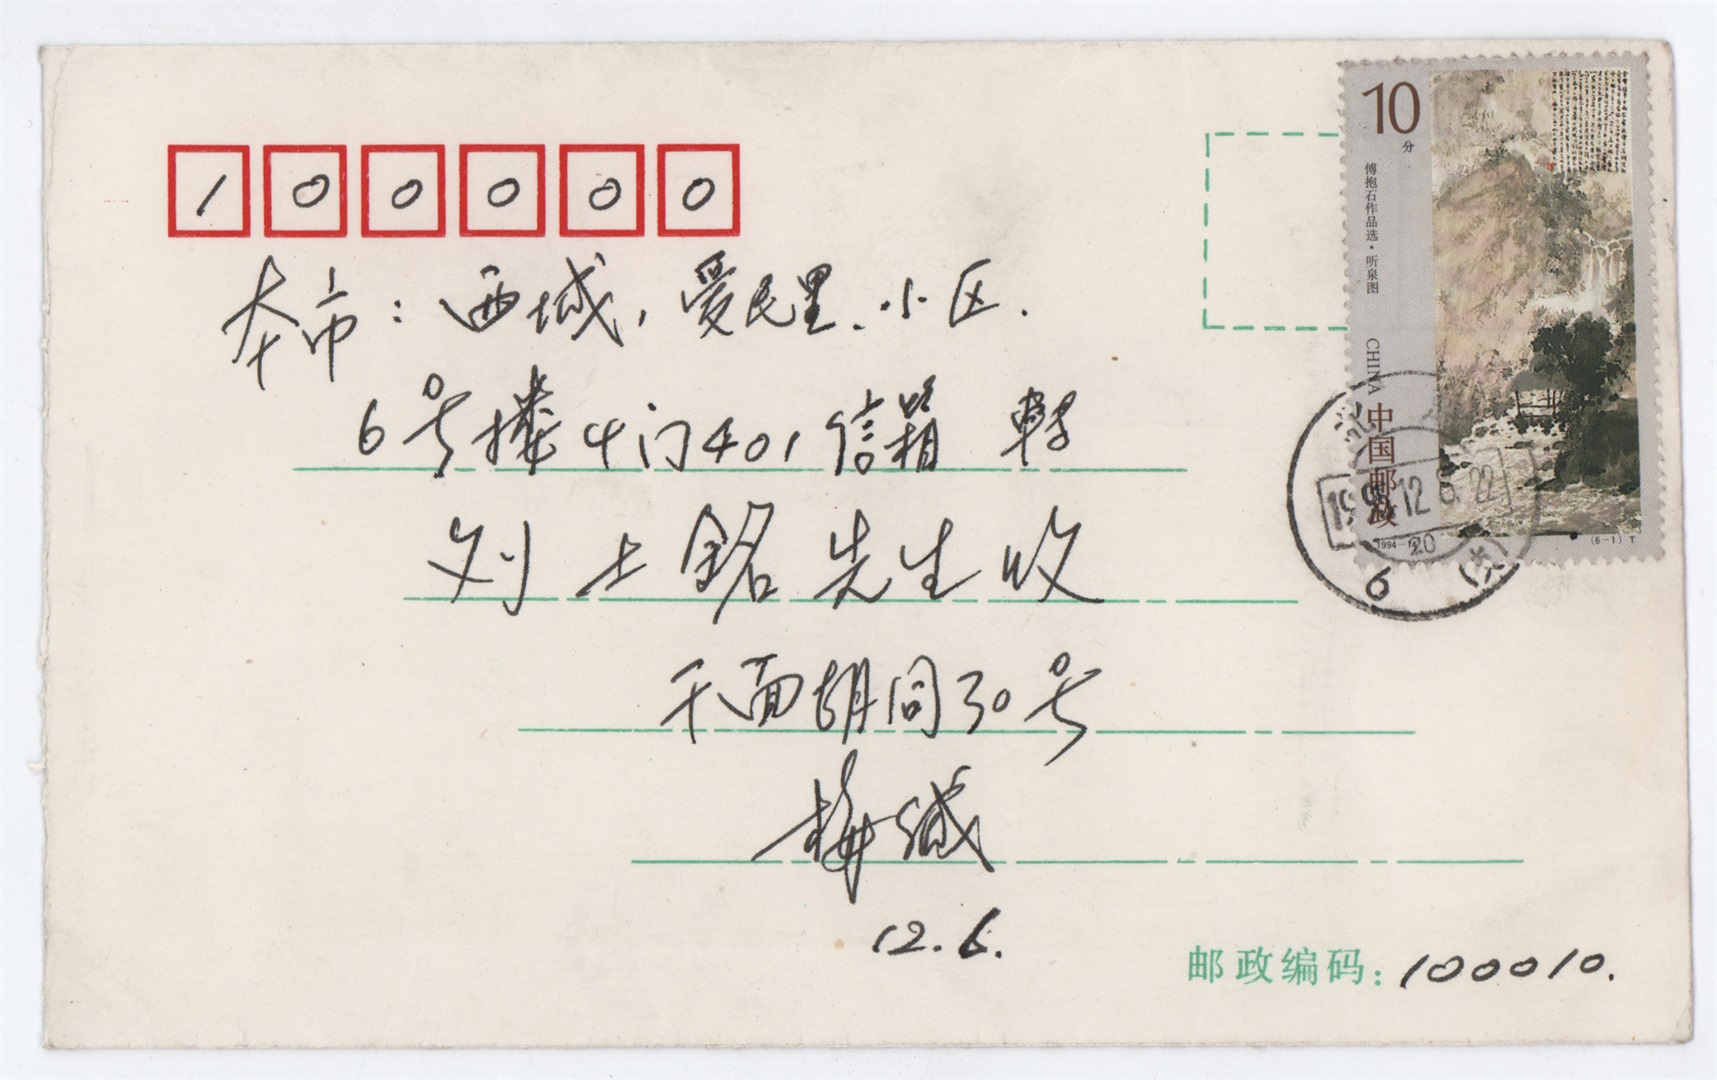 100000
本市：西城，爱民里.小区.
6号楼4门401信箱 转
刘士铭先生收
干面胡同30号
梅缄
12.6.
邮政编码：100010.
10
分
傅抱石作品选·听泉图
CHINA
中国邮政
1994-14
(6-1)T
12 6. 22
20
6